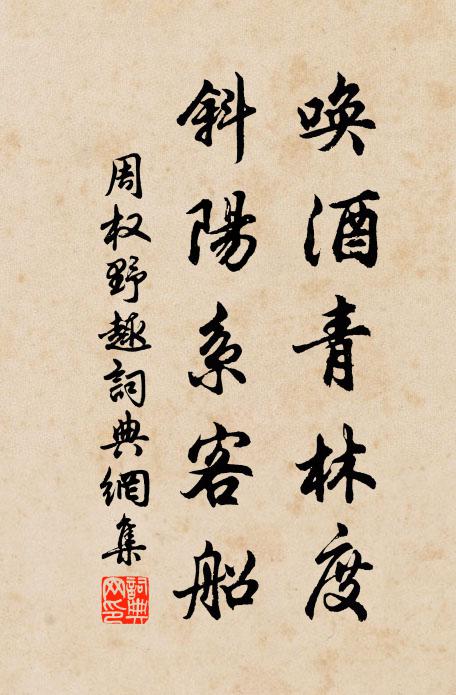 唤酒青林度
斜陽系客船
周权野趣詞典網集
詞典網印